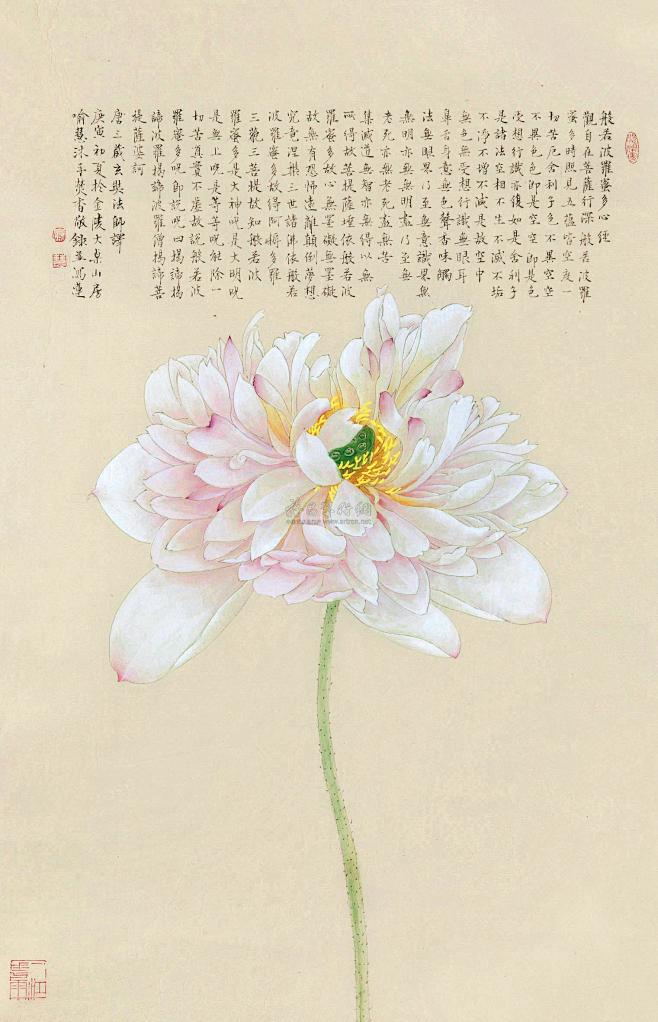 般若波羅蜜多心經
觀自在菩薩行深般若波羅
蜜多時照見五蘊皆空度一
切苦厄舍利子色不異空空
不異色色即是空空即是色
受想行識亦復如是舍利子
是諸法空相不生不滅不垢
不淨不增不減是故空中
無色無受想行識無眼耳
鼻舌身意無色聲香味觸
法無眼界乃至無意識界無
無明亦無無明盡乃至無
老死亦無老死盡無苦
集滅道無智亦無得以無
所得故菩提薩埵依般若波
羅蜜多故心無罣礙無罣礙
故無有恐怖遠離顛倒夢想
究竟涅槃三世諸佛依般若
波羅蜜多故得阿耨多羅
三藐三菩提故知般若波
羅蜜多是大神呪是大明呪
是無上呪是等等呪能除一
切苦真實不虛故說般若波
羅蜜多呪即說呪曰揭諦揭
諦波羅揭諦波羅僧揭諦菩
提薩婆訶
唐三藏玄奘法師譯
庚寅初夏於金陵大山房
喻慧沐手焚香敬錄並寫蓮
www.artron.net